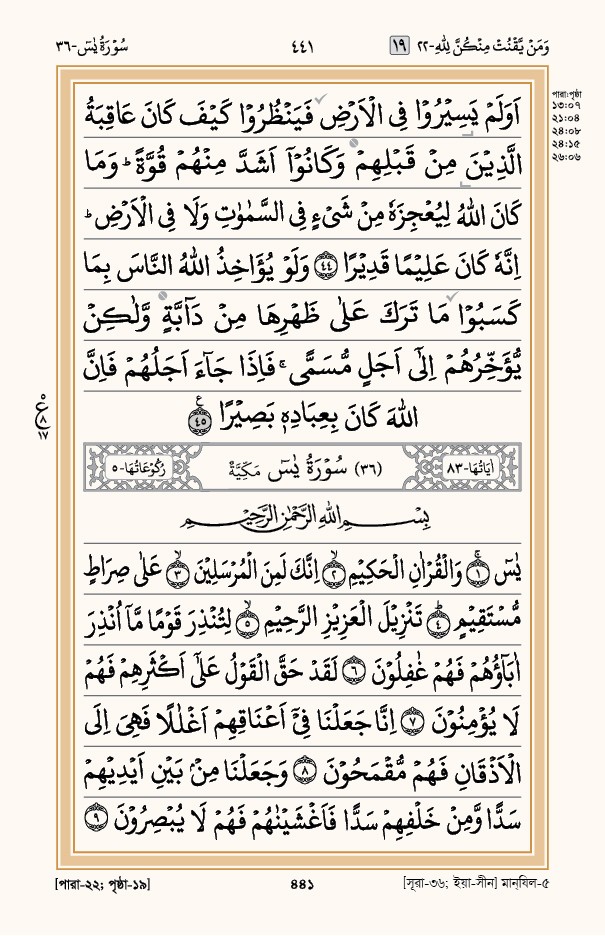 وَمَنْ يَّقْنُتْ مِنْكُنَّ لِلّٰهِ-٢٢ ١٩ ٤٤١ سُوْرَةُ يٰسٓ-٣٦
পারা:পৃষ্ঠা
১৩:০৭
২১:০৪
২৪:০৮
২৪:১৫
২৬:০৬
اَوَلَمْ يَسِيْرُوْا فِى الْاَرْضِ فَيَنْظُرُوْا كَيْفَ كَانَ عَاقِبَةُ
الَّذِيْنَ مِنْ قَبْلِهِمْ وَكَانُوْٓا اَشَدَّ مِنْهُمْ قُوَّةً ؕ وَمَا
كَانَ اللّٰهُ لِيُعْجِزَهٗ مِنْ شَىْءٍ فِى السَّمٰوٰتِ وَلَا فِى الْاَرْضِ ؕ
اِنَّهٗ كَانَ عَلِيْمًا قَدِيْرًا ﴿٤٤﴾ وَلَوْ يُؤَاخِذُ اللّٰهُ النَّاسَ بِمَا
كَسَبُوْا مَا تَرَكَ عَلٰى ظَهْرِهَا مِنْ دَآبَّةٍ وَّلٰكِنْ
يُّؤَخِّرُهُمْ اِلٰٓى اَجَلٍ مُّسَمًّى ۚ فَاِذَا جَآءَ اَجَلُهُمْ فَاِنَّ
اللّٰهَ كَانَ بِعِبَادِهٖ بَصِيْرًا ﴿٤٥﴾ ع
ع ٥ ٨ ١٧
اٰيَاتُهَا-٨٣ (٣٦) سُوْرَةُ يٰسٓ مَكِّيَّةٌ رُكُوْعَاتُهَا-٥
بِسْمِ اللّٰهِ الرَّحْمٰنِ الرَّحِيْمِ
يٰسٓ ﴿١﴾ وَالْقُرْاٰنِ الْحَكِيْمِ ﴿٢﴾ اِنَّكَ لَمِنَ الْمُرْسَلِيْنَ ﴿٣﴾ عَلٰى صِرَاطٍ
مُّسْتَقِيْمٍ ﴿٤﴾ تَنْزِيْلَ الْعَزِيْزِ الرَّحِيْمِ ﴿٥﴾ لِتُنْذِرَ قَوْمًا مَّآ اُنْذِرَ
اٰبَآؤُهُمْ فَهُمْ غٰفِلُوْنَ ﴿٦﴾ لَقَدْ حَقَّ الْقَوْلُ عَلٰٓى اَكْثَرِهِمْ فَهُمْ
لَا يُؤْمِنُوْنَ ﴿٧﴾ اِنَّا جَعَلْنَا فِىْٓ اَعْنَاقِهِمْ اَغْلٰلًا فَهِىَ اِلَى
الْاَذْقَانِ فَهُمْ مُّقْمَحُوْنَ ﴿٨﴾ وَجَعَلْنَا مِنْۢ بَيْنِ اَيْدِيْهِمْ
سَدًّا وَّمِنْ خَلْفِهِمْ سَدًّا فَاَغْشَيْنٰهُمْ فَهُمْ لَا يُبْصِرُوْنَ ﴿٩﴾
[পারা-২২; পৃষ্ঠা-১৯] ৪৪১ [সূরা-৩৬; ইয়া-সীন] মান্‌যিল-৫